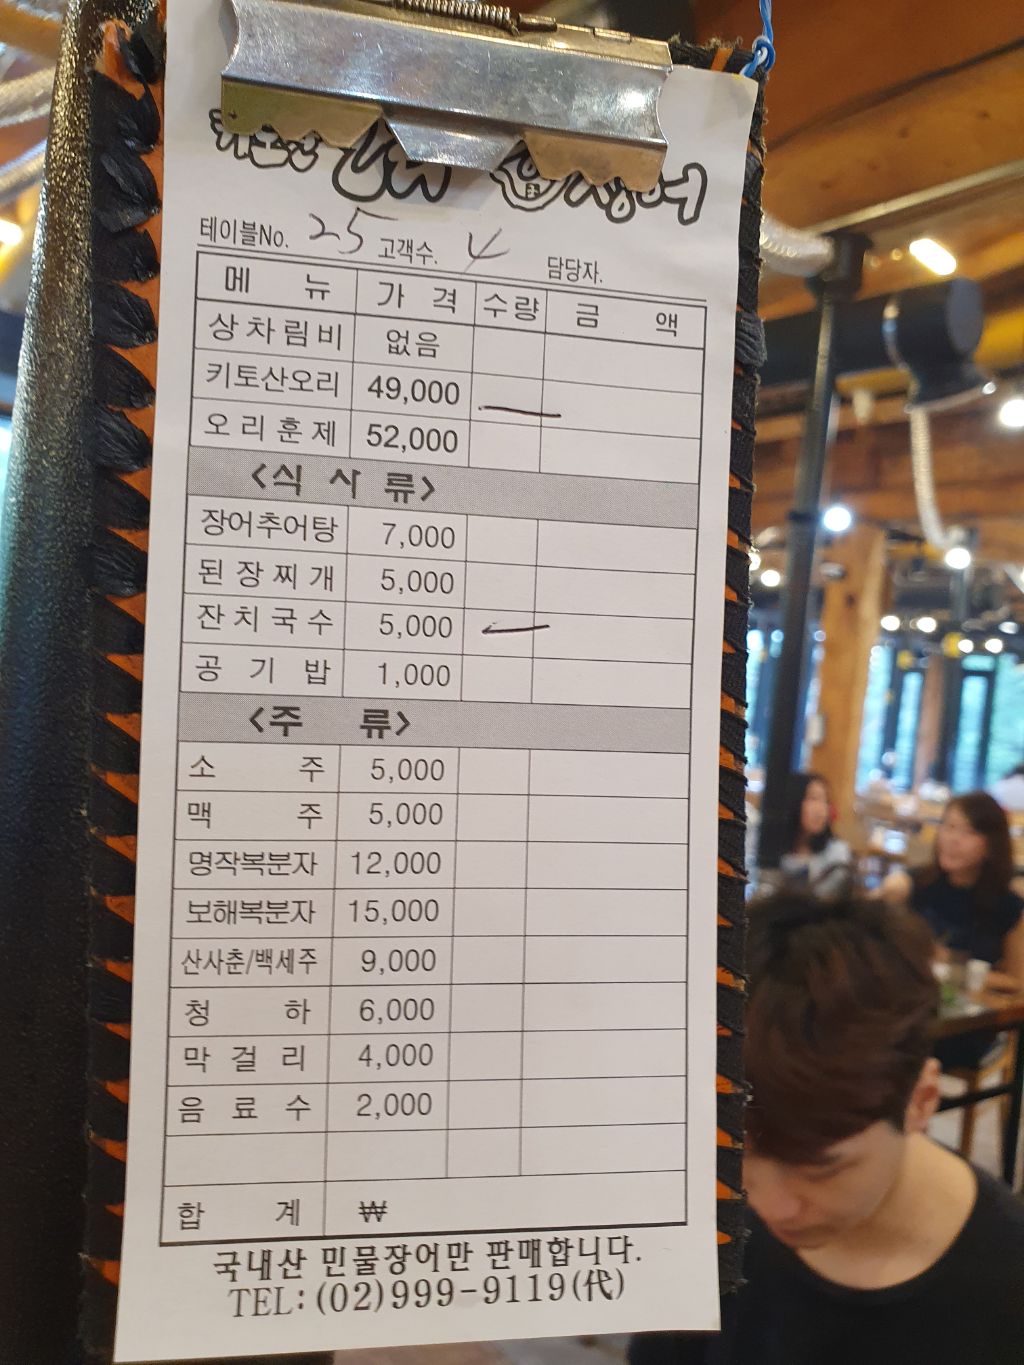 장어
테이블No. 25 고객수. 4 담당자.
메 뉴 가 격 수량 금 액
상차림비 없음
키토산오리 49,000 —
오리훈제 52,000
<식 사 류>
장어추어탕 7,000
된장찌개 5,000
잔치국수 5,000 —
공기밥 1,000
<주 류>
소 주 5,000
맥 주 5,000
명작복분자 12,000
보해복분자 15,000
산사춘/백세주 9,000
청 하 6,000
막걸리 4,000
음료수 2,000
합 계 ₩
국내산 민물장어만 판매합니다.
TEL: (02)999-9119(代)